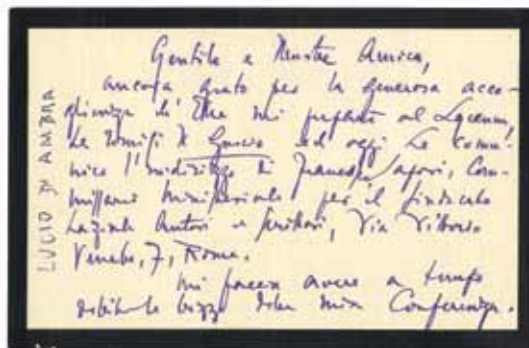 LUCIO D'AMBRA
Gentile e Illustre Amica,
ancora grato per la generosa acco-
glienza ch'Ella mi preparò al Lyceum,
Le ed oggi Le comu-
nico l'indirizzo di Francesco Sapori, Com-
missario ministeriale per il Sindacato
Laziale Autori e Scrittori, Via Vittorio
Veneto, 7, Roma.
Mi faccia avere a tempo
debito le della mia Conferenza.